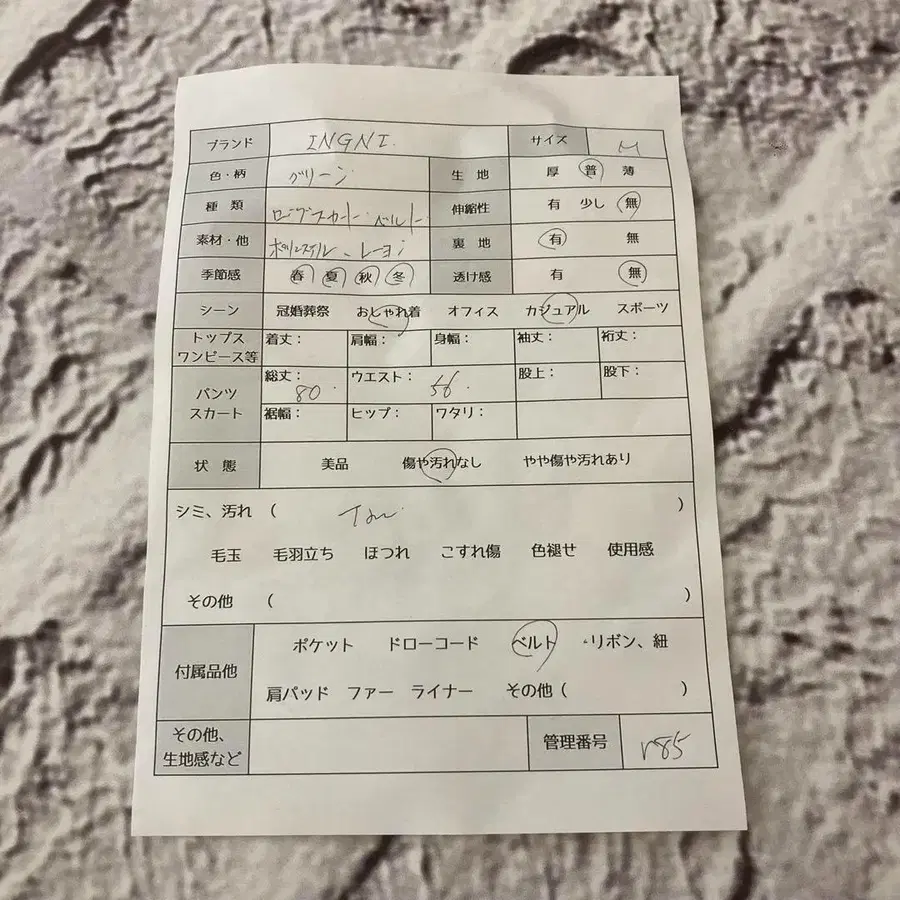 ブランド INGNI. サイズ M
色・柄 グリーン 生地 厚 普 薄
種類 ロングスカート・ベルト 伸縮性 有 少し 無
素材・他 ポリエステル、レーヨン 裏地 有 無
季節感 春 夏 秋 冬 透け感 有 無
シーン 冠婚葬祭 おしゃれ着 オフィス カジュアル スポーツ
トップス ワンピース等 着丈: 肩幅: 身幅: 袖丈: 裄丈:
パンツ スカート 総丈: 80 ウエスト: 56. 股上: 股下:
裾幅: ヒップ: ワタリ:
状態 美品 傷や汚れなし やや傷や汚れあり
シミ、汚れ ( )
毛玉 毛羽立ち ほつれ こすれ傷 色褪せ 使用感
その他 ( )
付属品他 ポケット ドローコード ベルト ・リボン、紐
肩パッド ファー ライナー その他 ( )
その他、生地感など 管理番号 r85